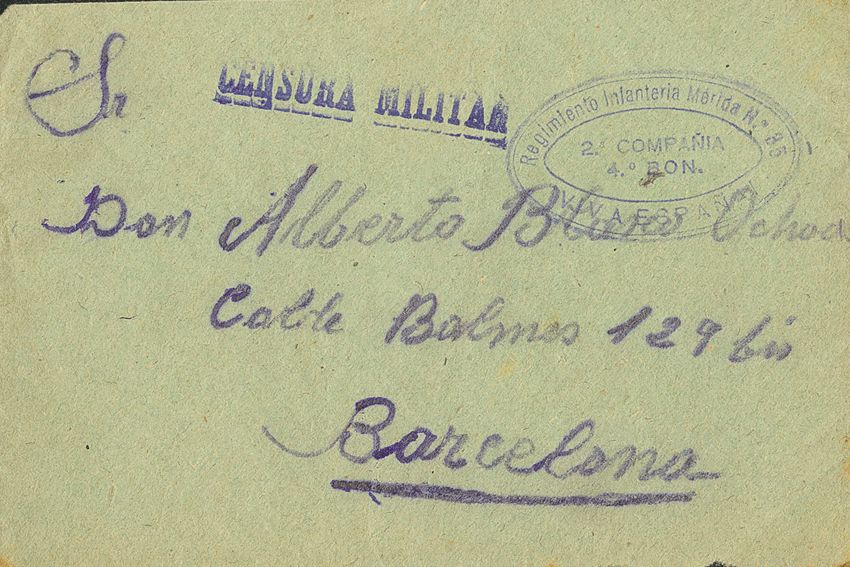 Sr
CENSURA MILITAR
Regimiento Infantería Mérida N.º 35
2.ª COMPAÑIA
4.º BON.
VIVA ESPAÑA
Don Alberto Blanco Ochoa
Calle Balmes 129 bis
Barcelona